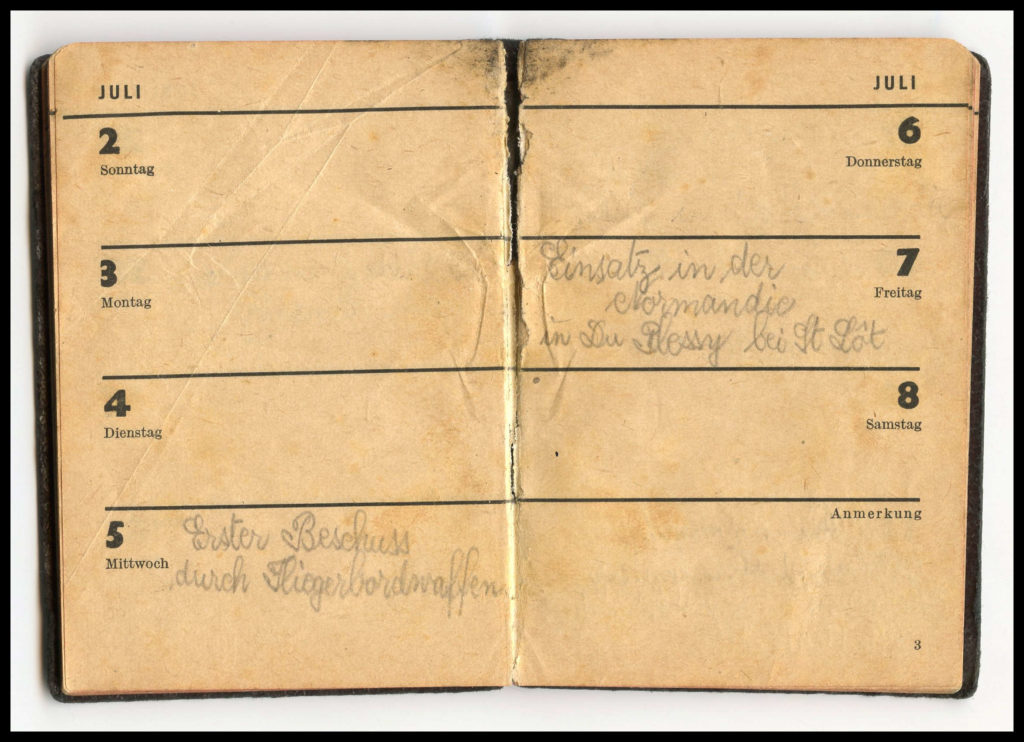 JULI
2
Sonntag
3
Montag
4
Dienstag
5
Mittwoch
Erster Beschuss
durch Fliegerbordwaffen
JULI
6
Donnerstag
7
Freitag
Einsatz in der
Normandie
in Du Plessy bei St Lôt
8
Samstag
Anmerkung
3